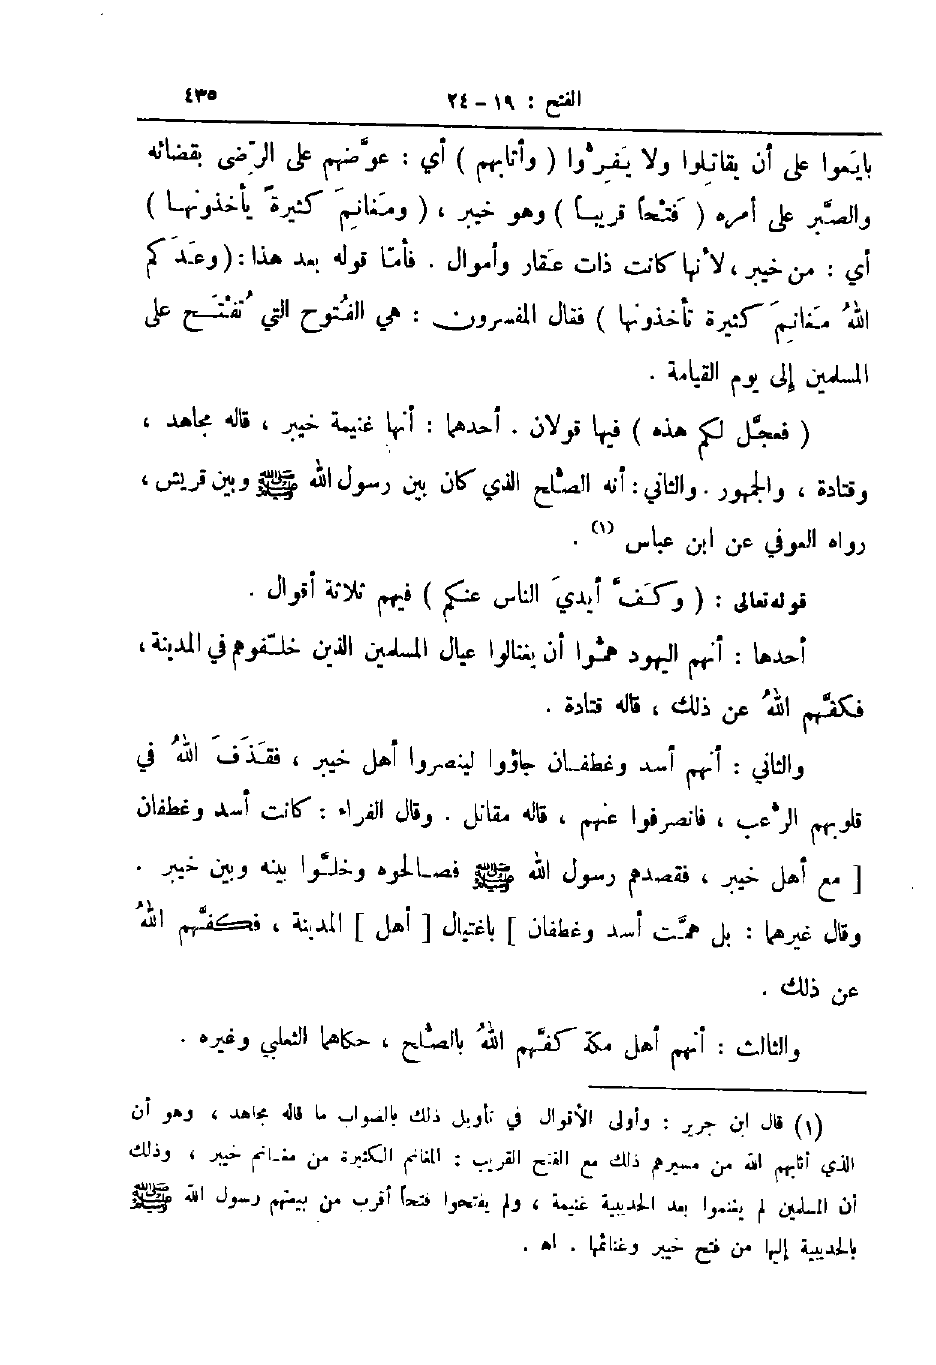 الفتح : ١٩ - ٢٤ ٤٣٥
بايَعوا على أن يقاتِلوا ولا يَفِرُّوا ( وأثابهم ) أي : عوَّضهم على الرِّضى بقضائه
والصَّبر على أمره ( فَتْحاً قريباً ) وهو خيبر ، ( ومَغانِمَ كثيرةً يأخذونها )
أي : من خيبر ، لأنها كانت ذات عَقار وأموال . فأمّا قوله بعد هذا : ( وعَدَكم
اللهُ مَغانِمَ كثيرة تأخذونها ) فقال المفسرون : هي الفُتوح التي تُفْتَح على
المسلمين إلى يوم القيامة .
( فعجَّل لكم هذه ) فيها قولان . أحدهما : أنها غنيمة خيبر ، قاله مجاهد ،
وقتادة ، والجمهور . والثاني : أنه الصُّلح الذي كان بين رسول الله ﷺ وبين قريش ،
رواه العوفي عن ابن عباس (١) .
قوله تعالى : ( وكَفَّ أيديَ الناس عنكم ) فيهم ثلاثة أقوال .
أحدها : أنهم اليهود همُّوا أن يغتالوا عيال المسلمين الذين خلَّفوهم في المدينة ،
فكفَّهم اللهُ عن ذلك ، قاله قتادة .
والثاني : أنهم أسد وغطفان جاؤوا لينصروا أهل خيبر ، فقَذَفَ اللهُ في
قلوبهم الرُّعب ، فانصرفوا عنهم ، قاله مقاتل . وقال الفراء : كانت أسد وغطفان
[ مع أهل خيبر ، فقصدهم رسول الله ﷺ فصالحوه وخلَّوا بينه وبين خيبر .
وقال غيرهما : بل همَّت أسد وغطفان ] باغتيال [ أهل ] المدينة ، فكفَّهم اللهُ
عن ذلك .
والثالث : أنهم أهل مكة كفَّهم اللهُ بالصُّلح ، حكاهما الثعلبي وغيره .
(١) قال ابن جرير : وأولى الأقوال في تأويل ذلك بالصواب ما قاله مجاهد ، وهو أن
الذي أثابهم الله من مسيرهم ذلك مع الفتح القريب : المغانم الكثيرة من مغانم خيبر ، وذلك
أن المسلمين لم يغنموا بعد الحديبية غنيمة ، ولم يفتحوا فتحاً أقرب من بيعتهم رسول الله ﷺ
بالحديبية إليها من فتح خيبر وغنائمها . اه .